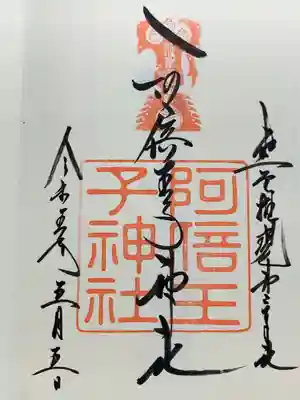 阿倍王子神社
阿倍王
子神社
令和五年五月五日